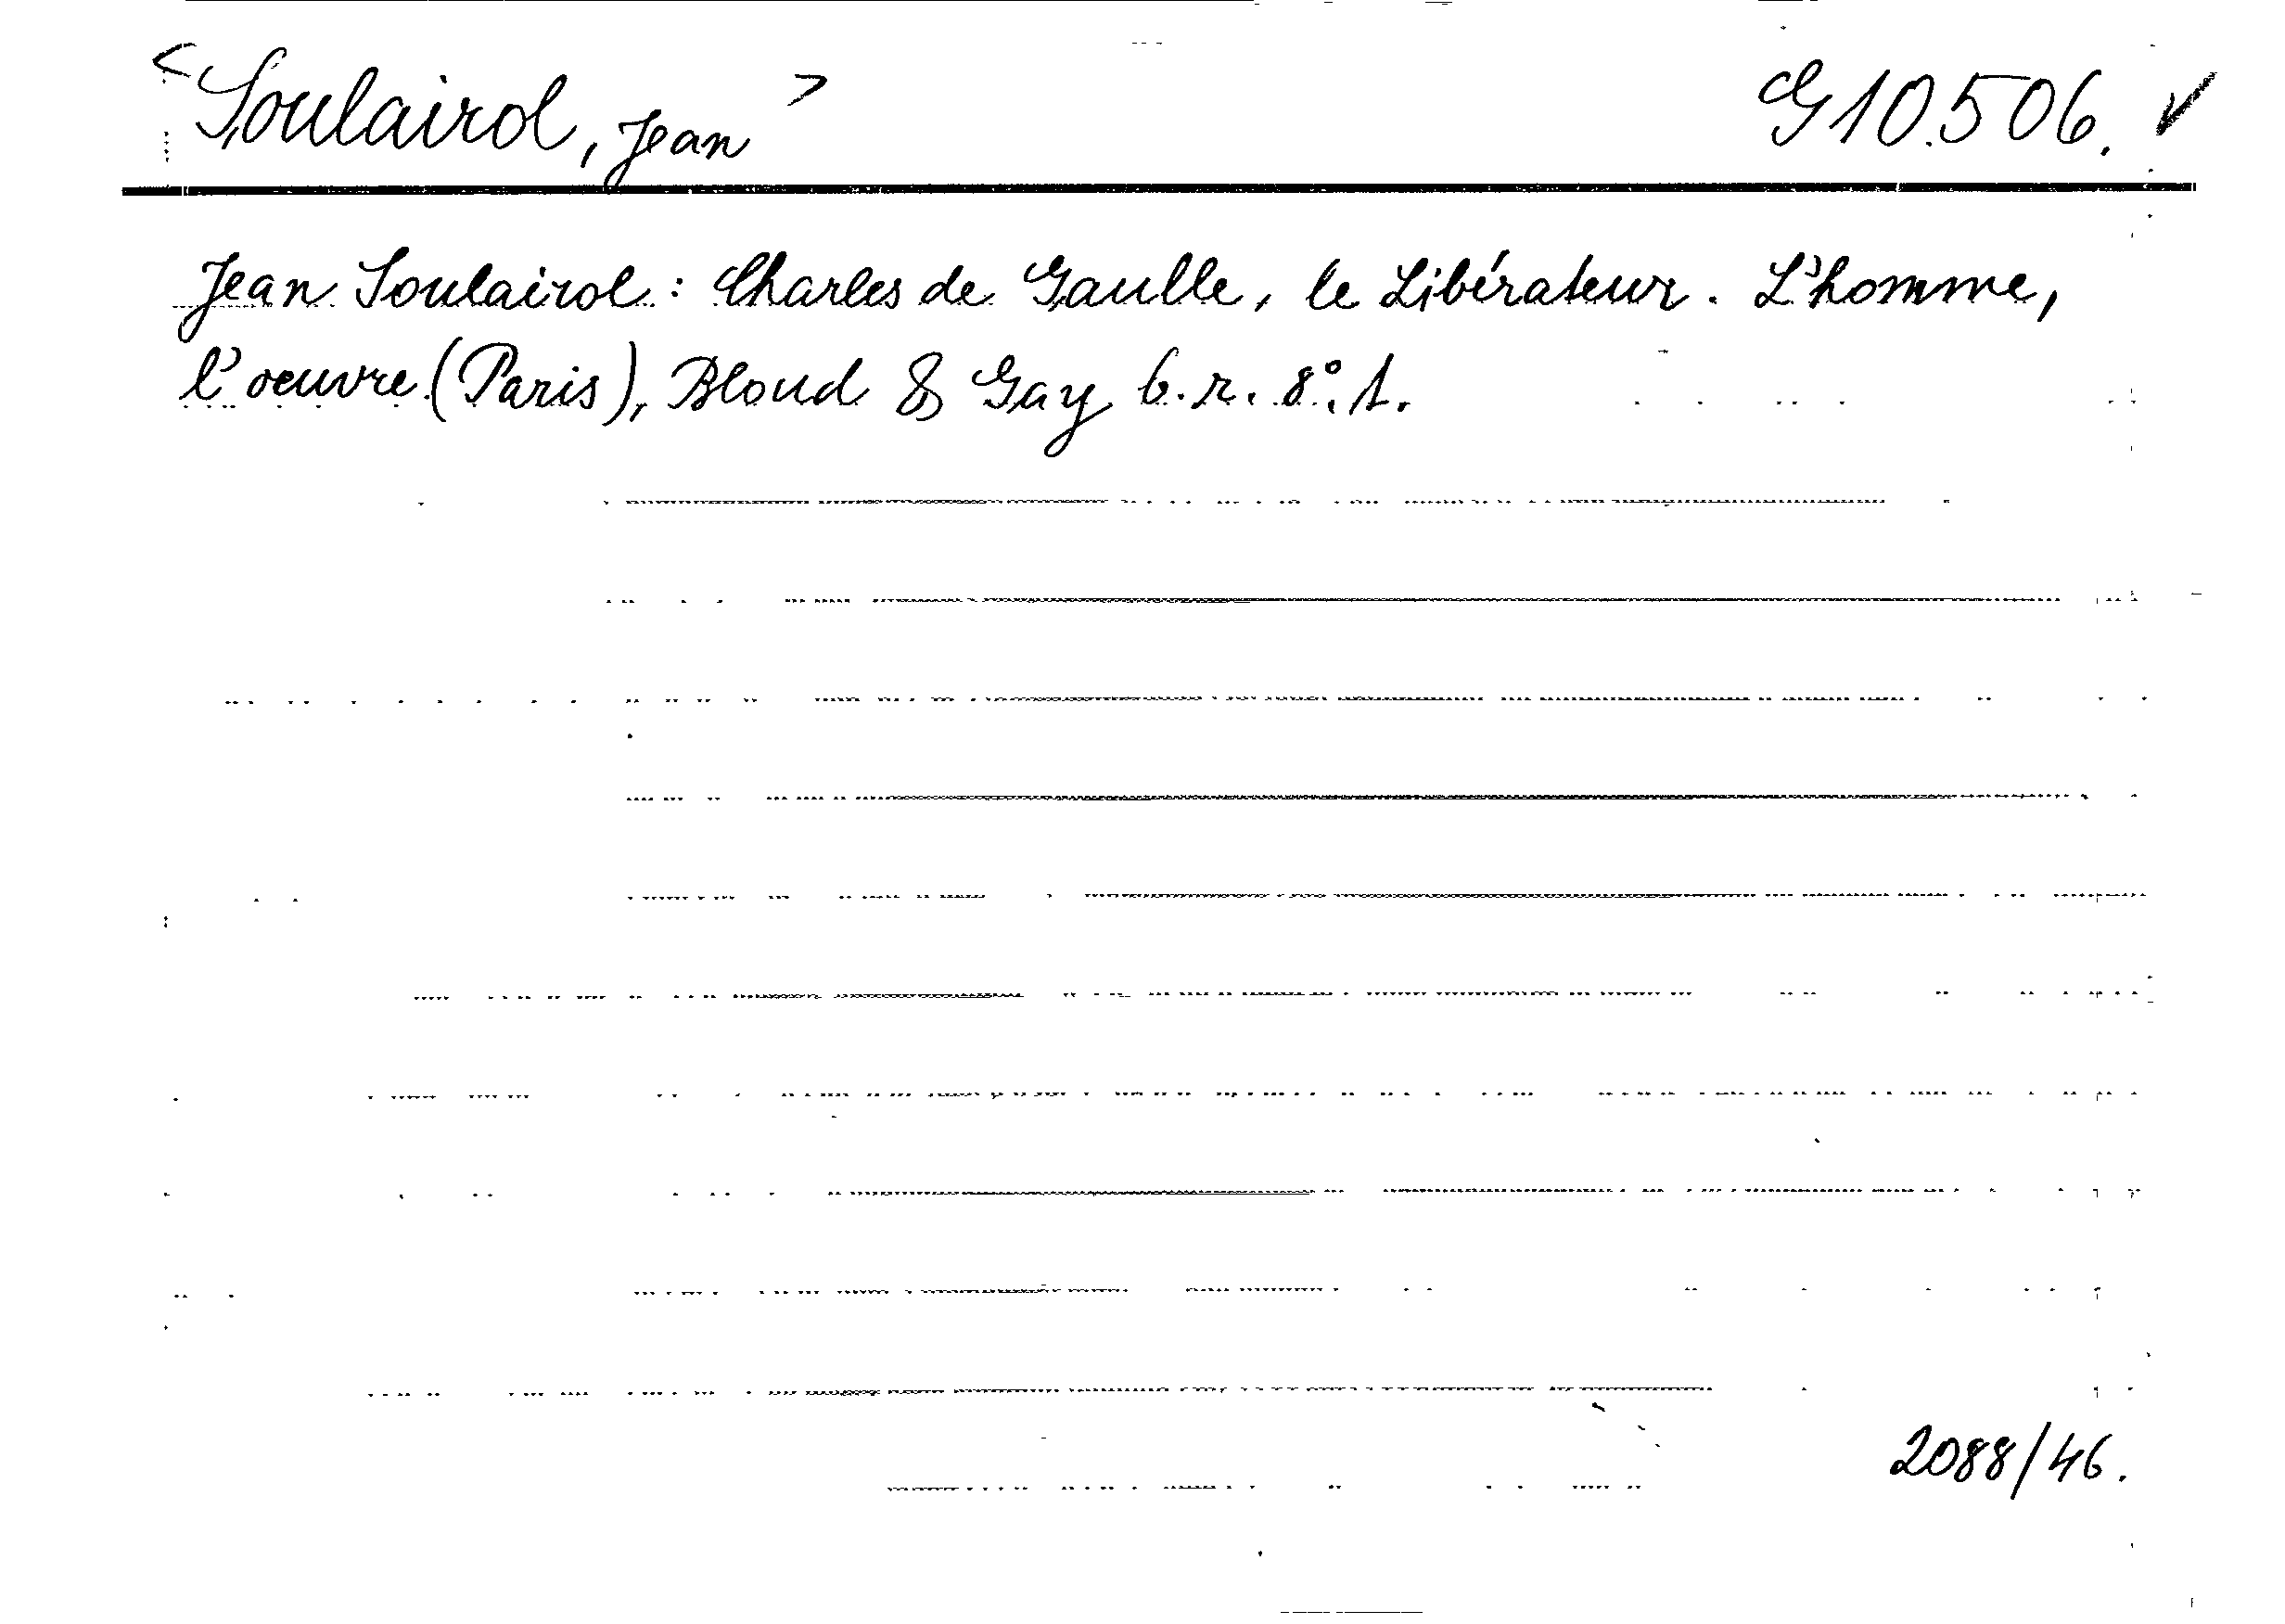 <Soulairol, Jean> G 10.506. ✓
Jean Soulairol: Charles de Gaulle, le Libérateur. L'homme,
l'oeuvre. (Paris), Bloud & Gay b. r. 8°. 1.
2088/46.